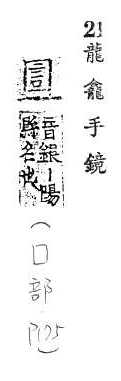 21 龍龕手鏡
圁
音銀丨陽
縣名也
(口部 P175)